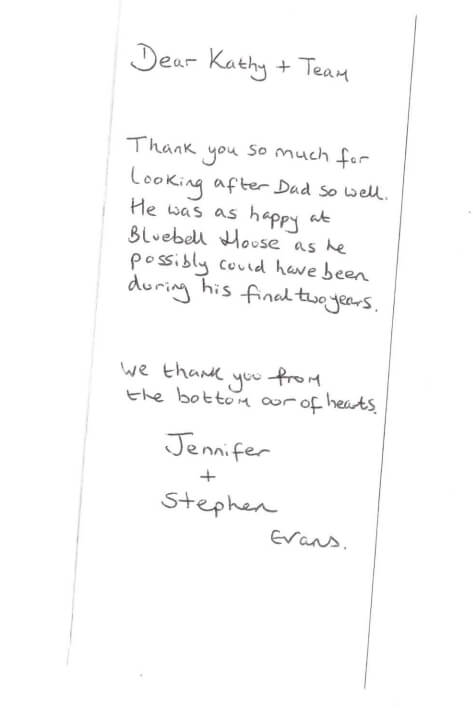 Dear Kathy + Team
Thank you so much for
looking after Dad so well.
He was as happy at
Bluebell House as he
possibly could have been
during his final two years.
We thank you from
the bottom our of hearts.
Jennifer
+
Stephen
Evans.